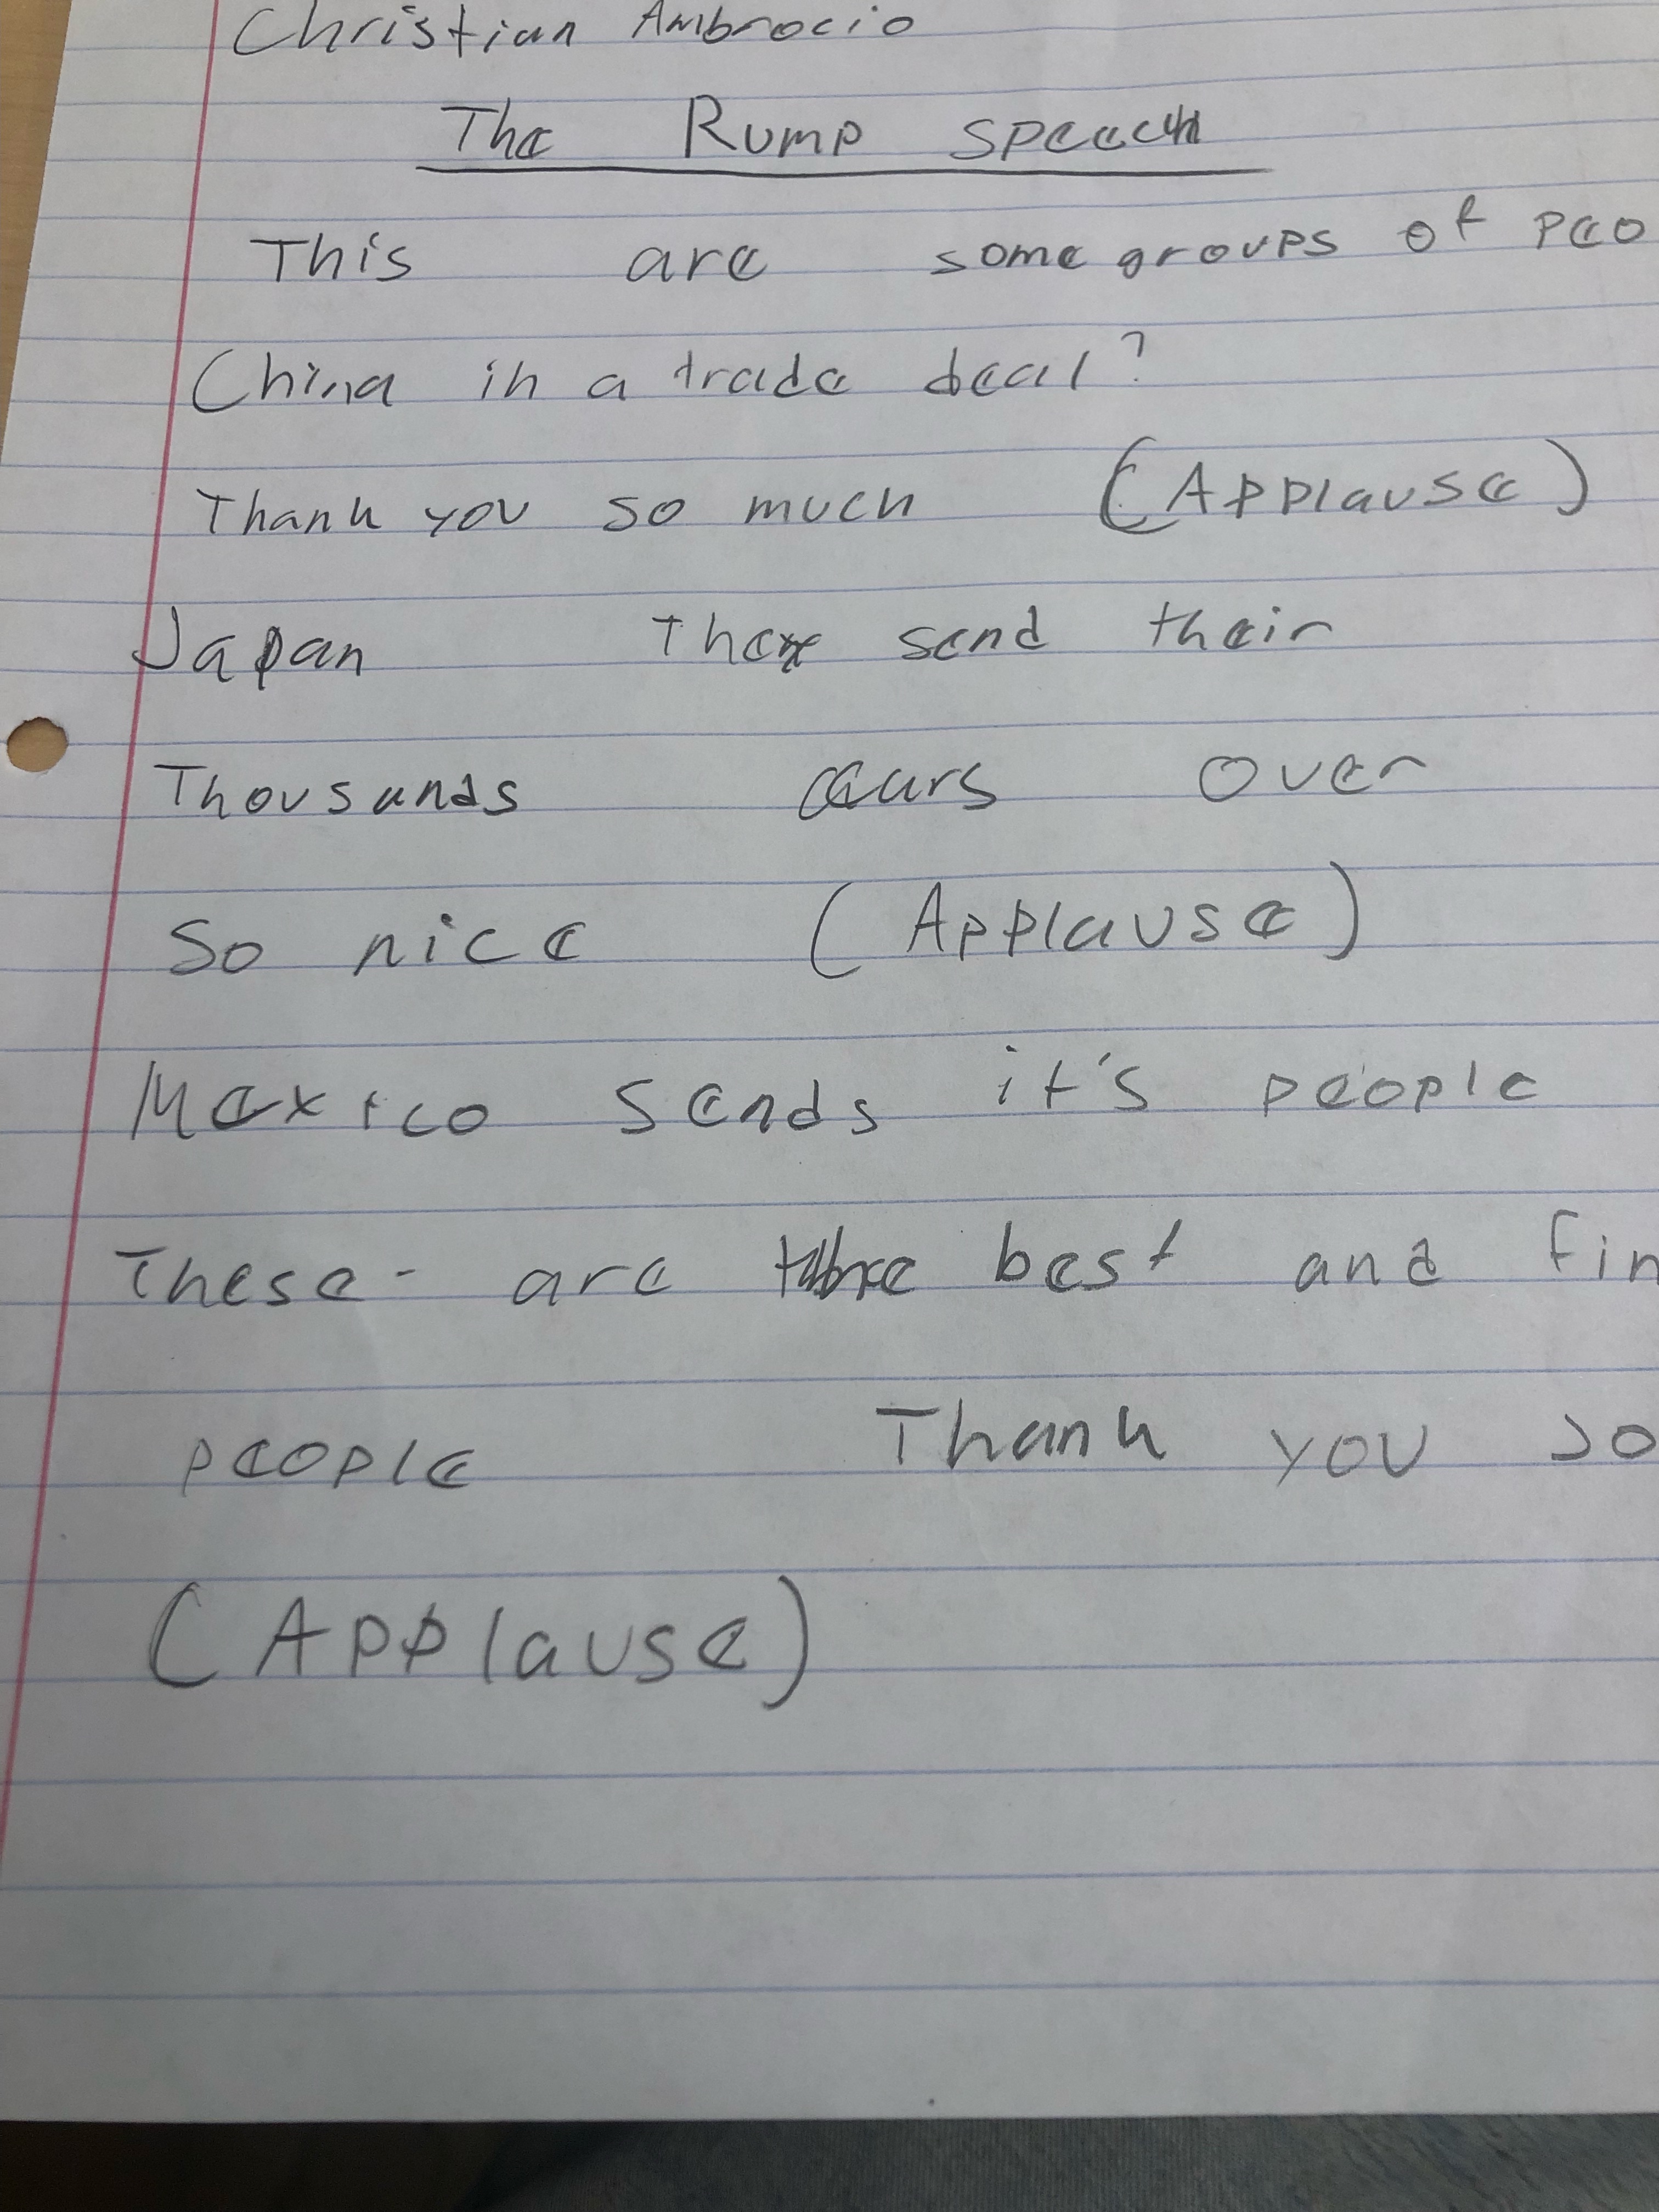 Christian Ambrocio
The Rump speech
This are some groups of peo
China in a trade deal?
Thank you so much (Applause)
Japan They send their
Thousands cars over
So nice (Applause)
Mexico sends it's people
These- are the best and fin
people Thank you so
(Applause)